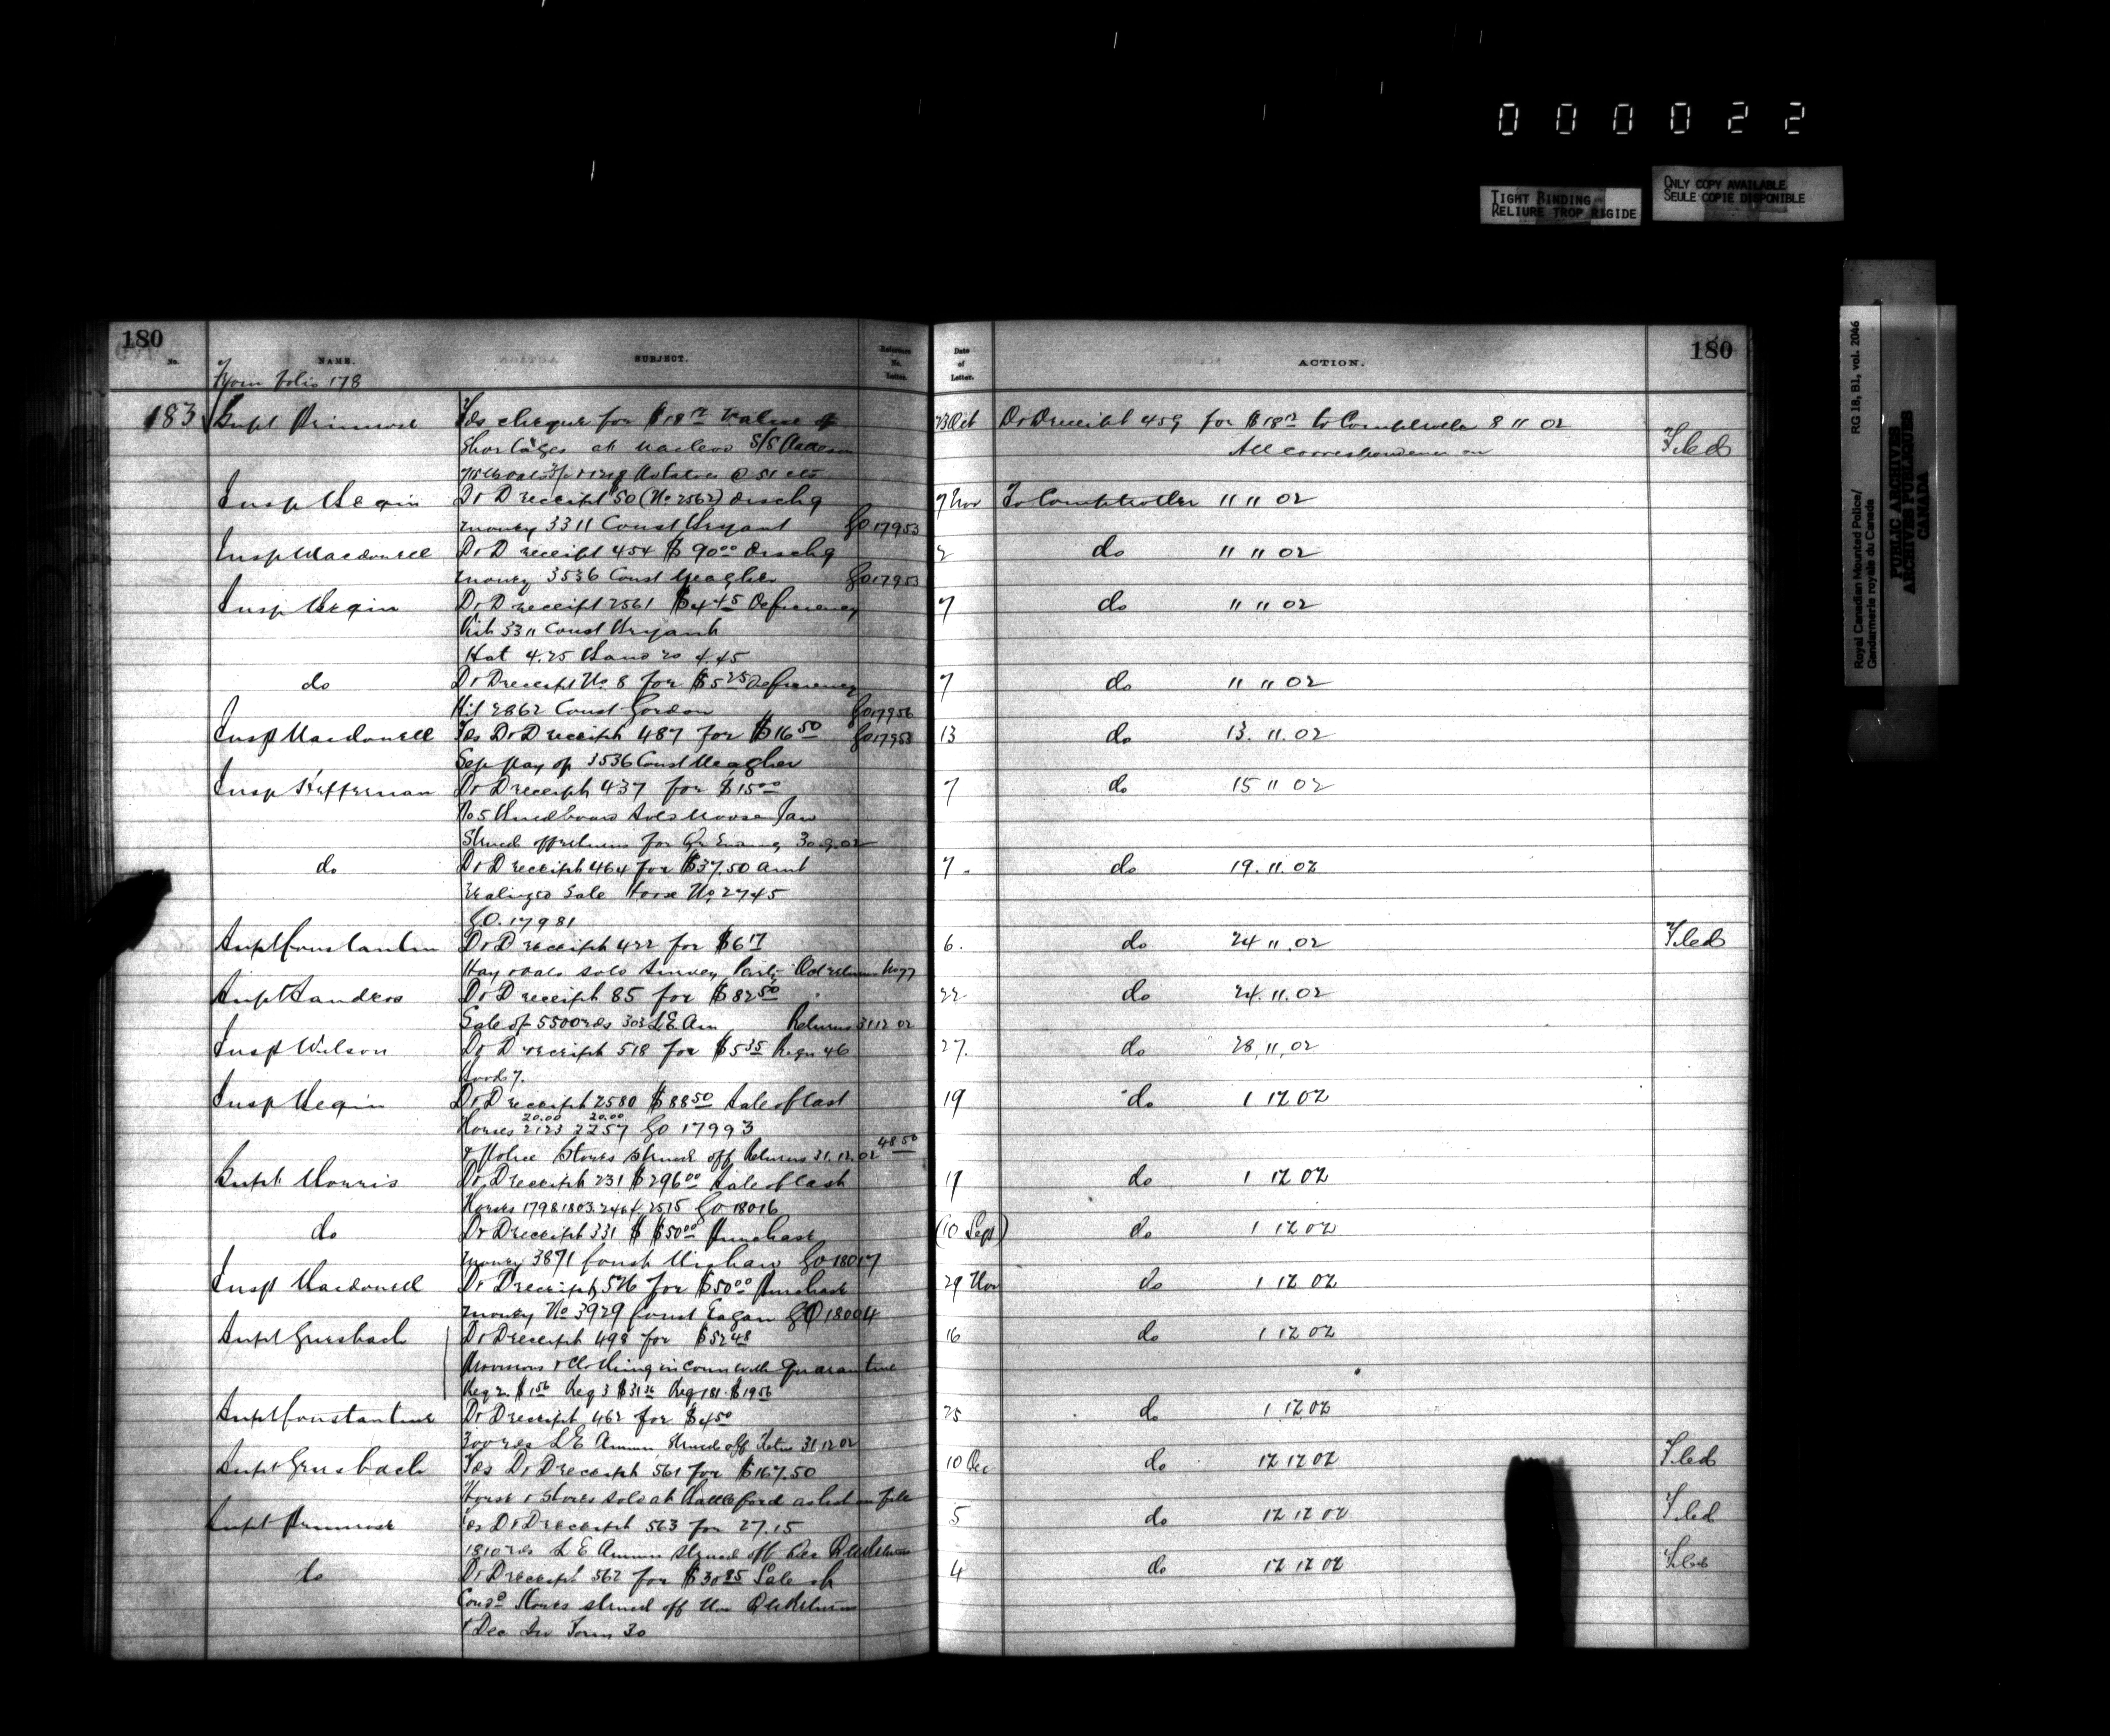 000022
TIGHT BINDING
RELIURE TROP RIGIDE
ONLY COPY AVAILABLE
SEULE COPIE DISPONIBLE
Royal Canadian Mounted Police/
Gendarmerie royale du Canada
RG 18, B1, vol. 2046
PUBLIC ARCHIVES
ARCHIVES PUBLIQUES
CANADA
180
No.
NAME.
SUBJECT.
Reference No. Letter.
Date of Letter.
ACTION.
180
From folio 178
183 Supt Primrose Fds cheque for $18 value of 23 Oct DrD receipt 459 for $18 to Comptroller 8 11 02
Shortages at Macleod S/S All correspondence on Filed
Potatoes @ 51 cts
Insp Begin DrD receipt $50 (No 2562) dischg 7 Nov To Comptroller 11 11 02
money 3311 Const Bryant GO 17953
Insp Macdonell DrD receipt 454 $90 00 dischg do 11 11 02
money 3536 Const Meagher GO 17953
Insp Begin DrD receipt 2561 $4 45 Deficiency 7 do 11 11 02
Kit 3311 Const Bryant
Hat 4.25 Band 20 4.45
do DrD receipt No. 8 for $5 25 Deficiency 7 do 11 11 02
Kit 2862 Const Gordon GO 17956
Insp Macdonell Fds DrD receipt 487 for $16 50 GO 17953 13 do 13. 11. 02
Sep pay of 3536 Const Meagher
Insp Heffernan DrD receipt 437 for $15 00 7 do 15 11 02
Sold Moose Jaw
Struck off returns for Qr Ending 30.9.02
do DrD receipt 464 for $37.50 amt 7. do 19. 11. 02
realized Sale Horse No 2745
G.O. 17981
Supt Constantine DrD receipt 422 for $6 17 6. do 24 11. 02 Filed
Hay & oats sold Survey Party
Supt Sanders DrD receipt 85 for $82 50 22 do 24. 11. 02
Sale of 5500 rds 303 L.E. Am Returns 31 12 02
Insp Wilson DrD receipt 518 for $5 35 Reqn 46 27. do 28, 11, 02
Insp Begin DrD receipt 2580 $88 50 Sale of cast 19 do 1 12 02
20.00 20.00
Horses 2123 2257 GO 17993
& Police Stores struck off Returns 31.12.02 48 50
Supt Morris DrD receipt 231 $296 00 Sale of cast 17 do 1 12 02
Horses 1798 1803 2464 2515 GO 18016
do DrD receipt 331 $50 00 Purchase (10 Sept) do 1 12 02
money 3871 Const GO 18017
Insp Macdonell DrD receipt 526 for $50 00 Purchase 29 Nov do 1 12 02
money No 3929 Const Eagan GO 18004
Supt Griesbach DrD receipt 498 for $52 48 16 do 1 12 02
Provisions & Clothing in conn with Quarantine
Reg 2. $1 56 Reg 3 $31 36 Reg 181. $19 56
Supt Constantine DrD receipt 462 for $4 50 25 do 1 12 02
300 rds L E Ammn Struck off Retns 31 12 02
Supt Griesbach Fds DrD receipt 561 for $167.50 10 Dec do 12 12 02 Filed
Horse & Stores sold at Battleford as list on file
Supt Primrose Fds DrD receipt 563 for 27.15 5 do 12 12 02 Filed
1810 rds L E Ammn struck off Dec Qr Returns
do DrD receipt 562 for $30 85 Sale of 4 do 12 12 02 Filed
Cond Stores struck off Nov Qr Returns
& Dec Form 30